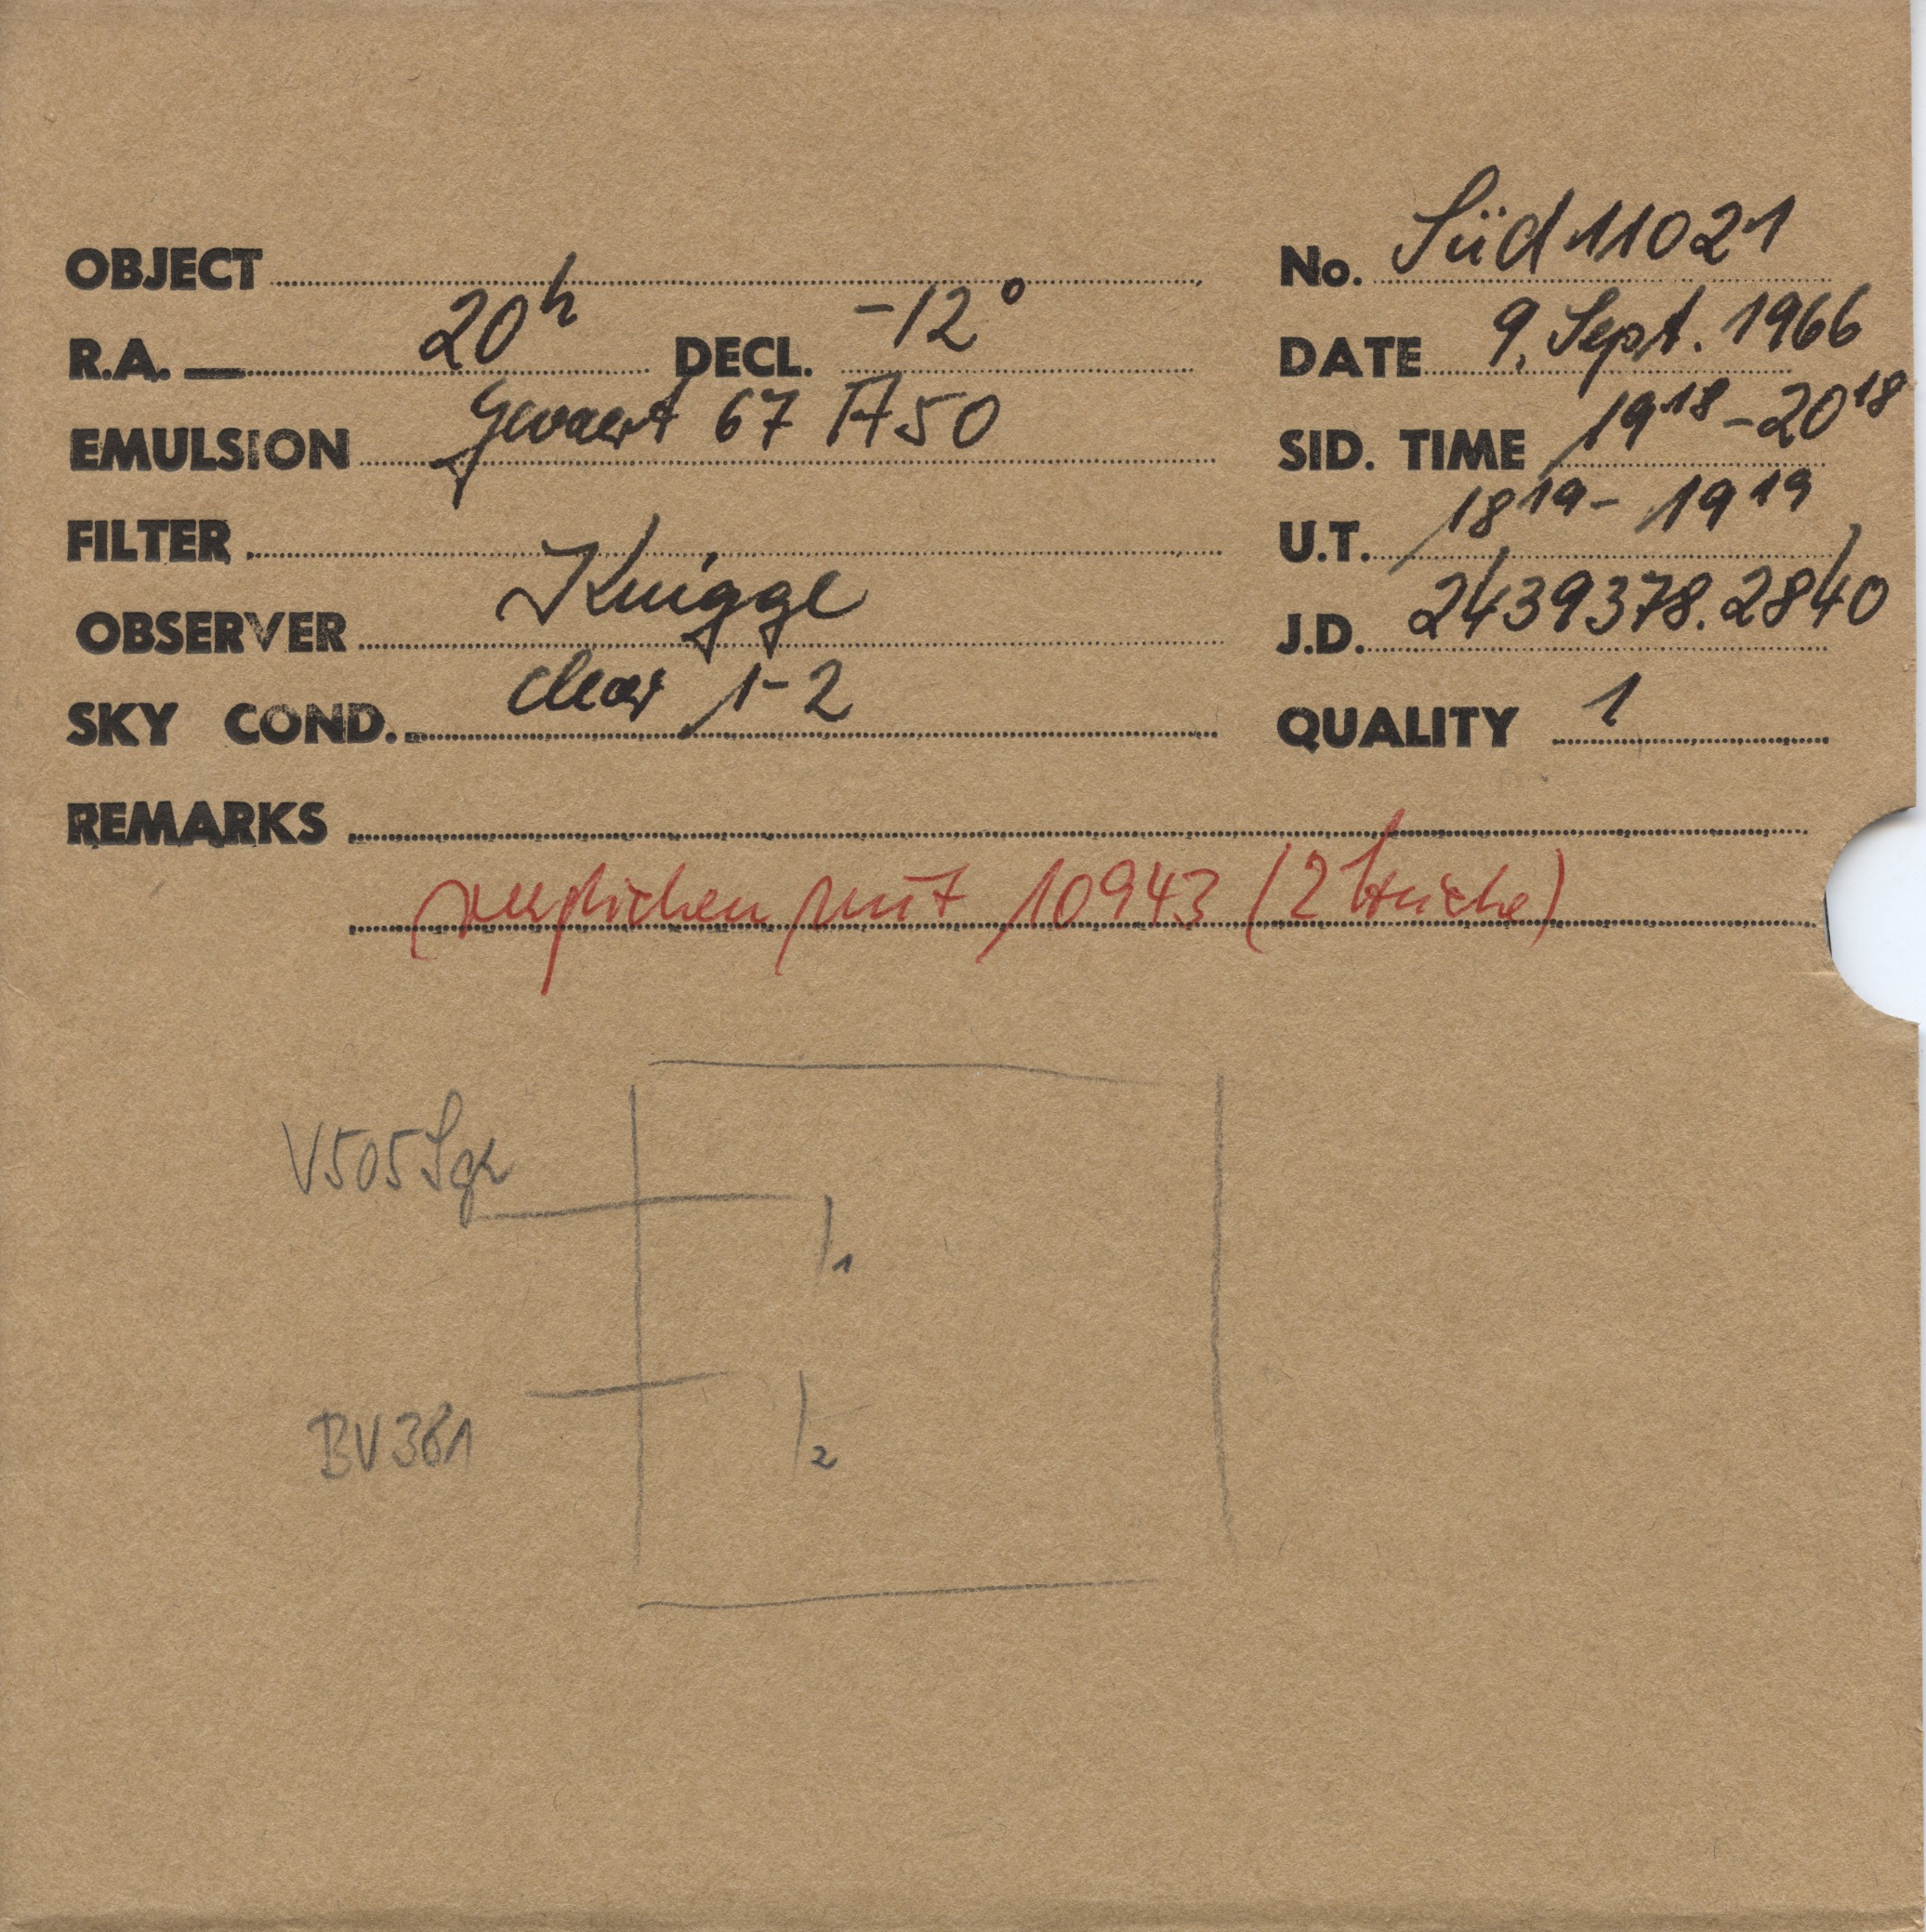 OBJECT No. Süd 11021
R.A. 20h DECL. -12° DATE 9. Sept. 1966
EMULSION Gevaert 67 A50 SID. TIME 19 18 - 20 18
FILTER U.T. 18 19 - 19 19
OBSERVER Knigge J.D. 2439378.2840
SKY COND. clear 1-2 QUALITY 1
REMARKS
verglichen mit 10943 (2 Striche)
V505 Sgr
1
BV 381
2